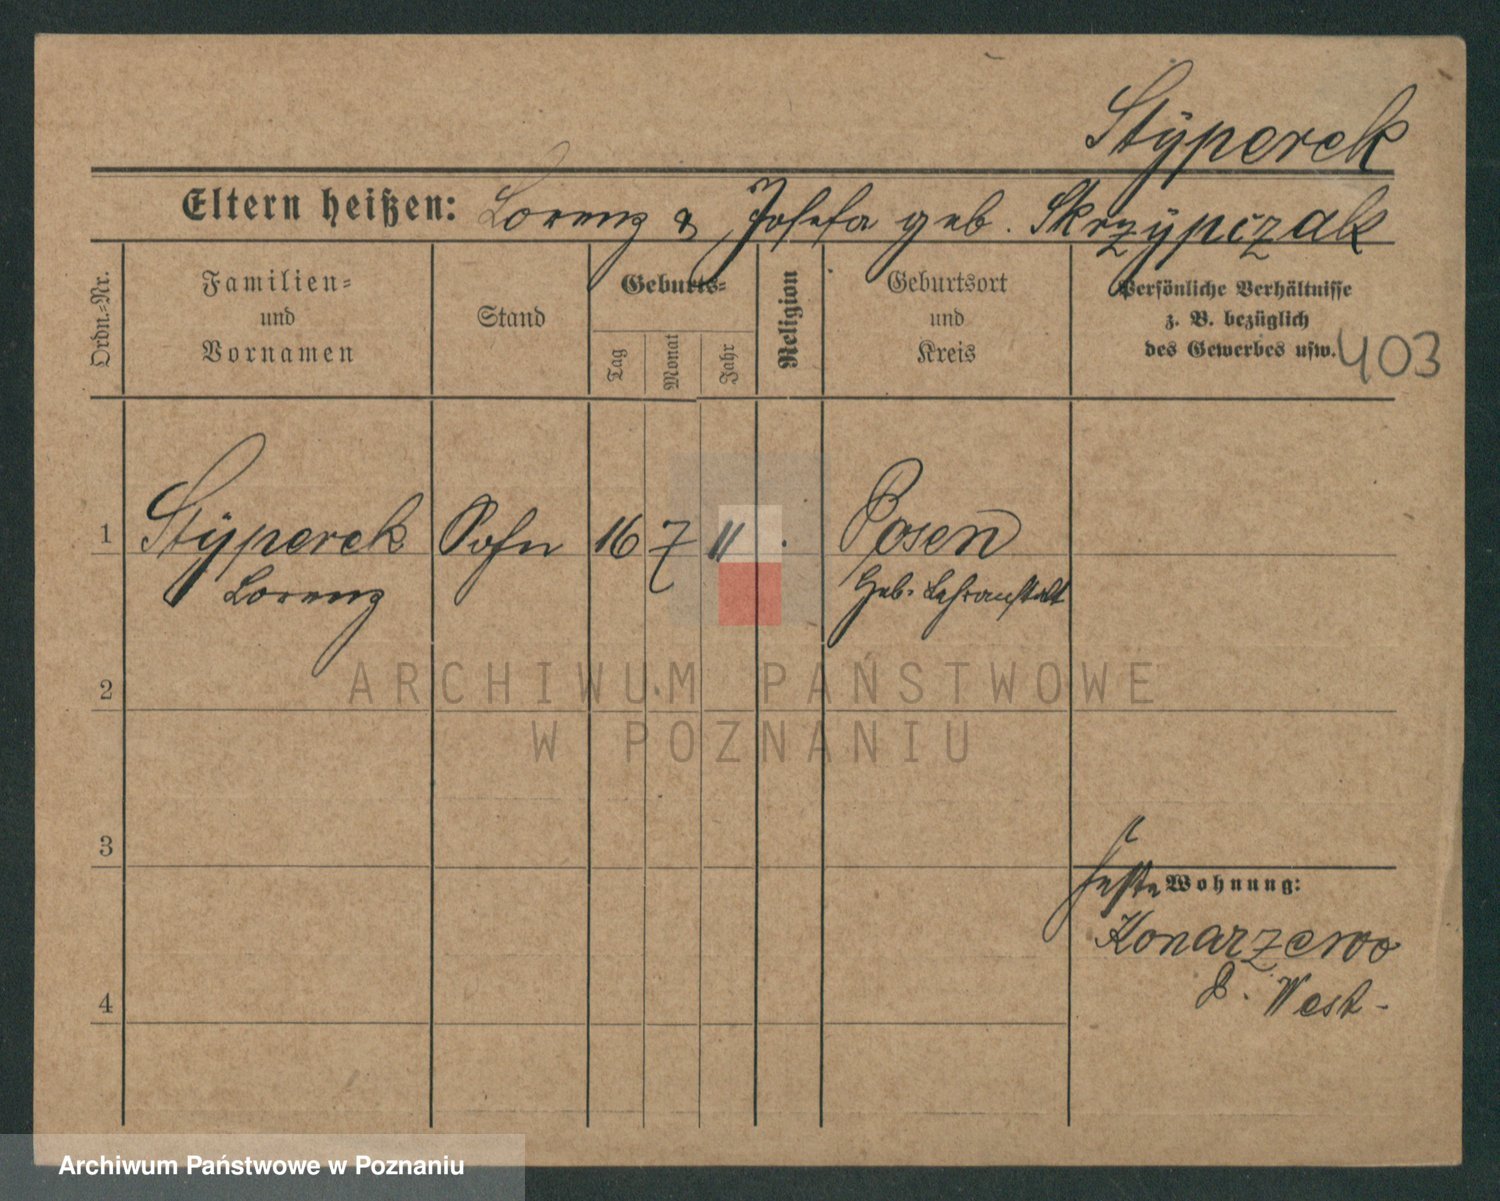 Styperek
Eltern heißen: Lorenz & Josefa geb. Skrzypczak
Ordn.-Nr.
Familien-
und
Vornamen
Stand
Geburts-
Tag
Monat
Jahr
Religion
Geburtsort
und
Kreis
Persönliche Verhältnisse
z. B. bezüglich
des Gewerbes usw.
403
1 Styperek Sohn 16 7 11 Posen
Lorenz Heb. Lehranstalt
ARCHIWUM PAŃSTWOWE
W POZNANIU
2
3
feste Wohnung:
Konarzewo
P. West-
4
Archiwum Państwowe w Poznaniu